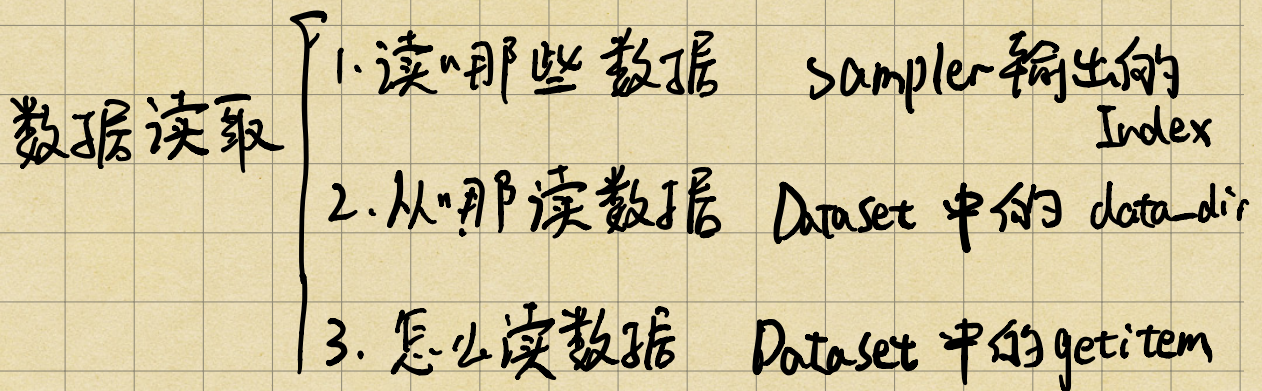 数据读取
1. 读哪些数据 Sampler输出的
Index
2. 从哪读数据 Dataset 中的 data_dir
3. 怎么读数据 Dataset 中的getitem